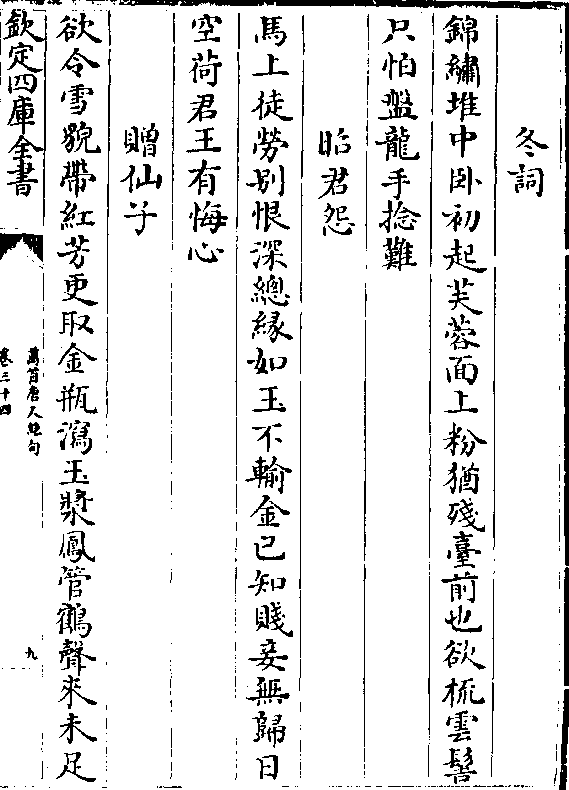 冬詞
錦繡堆中卧初起芙蓉面上粉猶殘臺前也欲梳雲髻
只怕盤龍手捻難
昭君怨
馬上徒勞别恨深總緣如玉不輸金已知賤妾無歸日
空荷君王有悔心
贈仙子
欲令雪貌帶紅芳更取金瓶瀉玉漿鳳管鶴聲來未足
欽定四庫全書
萬首唐人絶句
卷三十四
九